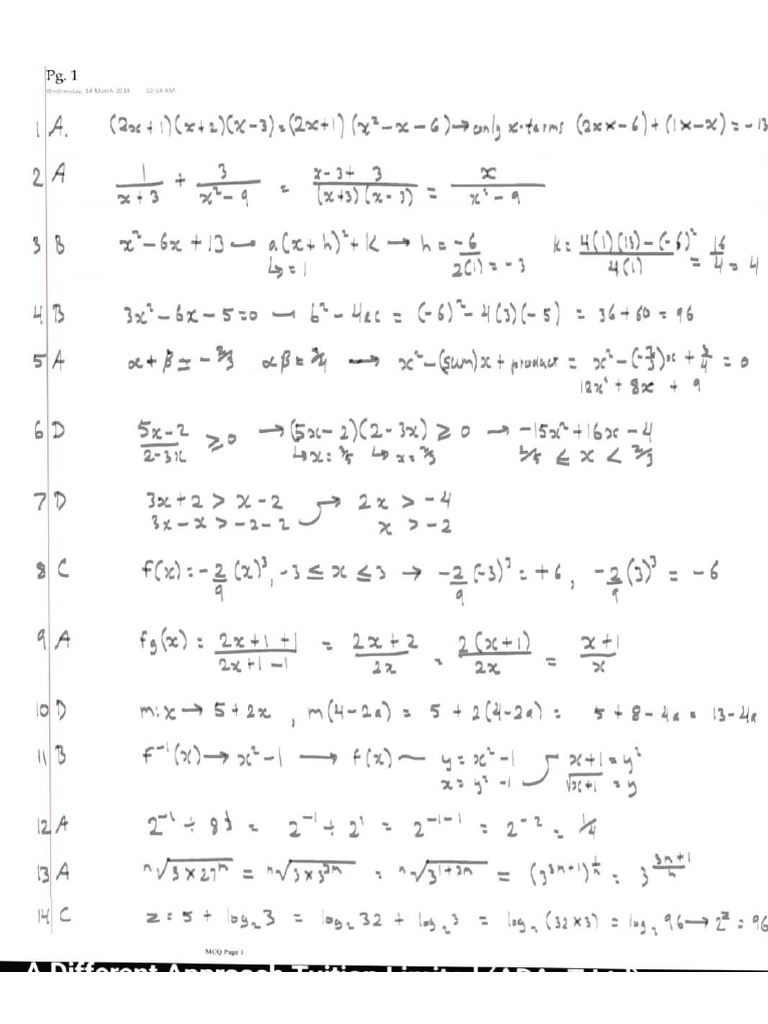 Pg. 1
Wednesday, 14 March 2018 10:38 AM
1 A. (2x+1)(x+2)(x-3) = (2x+1)(x²-x-6) → only x-terms (2x×-6)+(1×-x) = -13
2 A 1/(x+3) + 3/(x²-9) = (x-3+3)/((x+3)(x-3)) = x/(x²-9)
3 B x²-6x+13 → a(x+h)²+k → h = -6/2(1) = -3 k = (4(1)(13)-(-6)²)/4(1) = 16/4 = 4
↳ = 1
4 B 3x²-6x-5=0 — b²-4ac = (-6)²-4(3)(-5) = 36+60 = 96
5 A α+β = -2/3 αβ = 3/4 → x²-(sum)x+product = x²-(-2/3)x+3/4 = 0
12x²+8x+9
6 D (5x-2)/(2-3x) ≥ 0 → (5x-2)(2-3x) ≥ 0 → -15x²+16x-4
↳ x = 2/5 ↳ x = 2/3 2/5 ≤ x < 2/3
7 D 3x+2 > x-2 → 2x > -4
3x-x > -2-2 x > -2
8 C f(x) = -2/9 (x)³, -3 ≤ x ≤ 3 → -2/9 (-3)³ = +6, -2/9 (3)³ = -6
9 A fg(x) = (2x+1+1)/(2x+1-1) = (2x+2)/2x = 2(x+1)/2x = (x+1)/x
10 D m: x → 5+2x, m(4-2a) = 5+2(4-2a) = 5+8-4a = 13-4a
11 B f⁻¹(x) → x²-1 → f(x) — y = x²-1 x+1 = y²
x = y²-1 √(x+1) = y
12 A 2⁻¹ ÷ 8^(1/3) = 2⁻¹ ÷ 2¹ = 2⁻¹⁻¹ = 2⁻² = 1/4
13 A ⁿ√(3×27ⁿ) = ⁿ√(3×3³ⁿ) = ⁿ√(3¹⁺³ⁿ) = (3³ⁿ⁺¹)^(1/n) = 3^((3n+1)/n)
14 C z = 5+log₂3 = log₂32 + log₂3 = log₂(32×3) = log₂96 → 2ᶻ = 96
MCQ Page 1
A Different Approach Tuition Limited